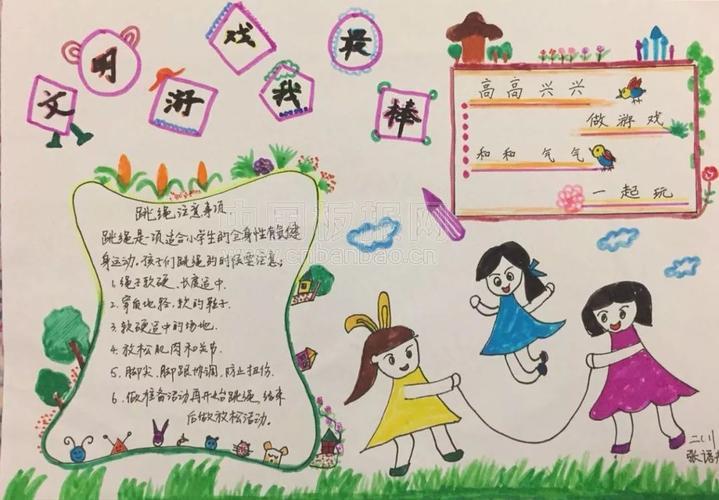 文明游戏我最棒
高高兴兴
做游戏
和和气气
一起玩
跳绳注意事项
跳绳是一项适合小学生的全身性有氧健
身运动，孩子们跳绳的时候要注意：
1. 绳子软硬、长度适中.
2. 穿质地轻、软的鞋子
3. 软硬适中的场地.
4. 放松肌肉和关节.
5. 脚尖、脚跟协调，防止扭伤.
6. 做准备活动再开始跳绳，结束
后做放松活动.
中国板报网
cnbanbao.cn
张语